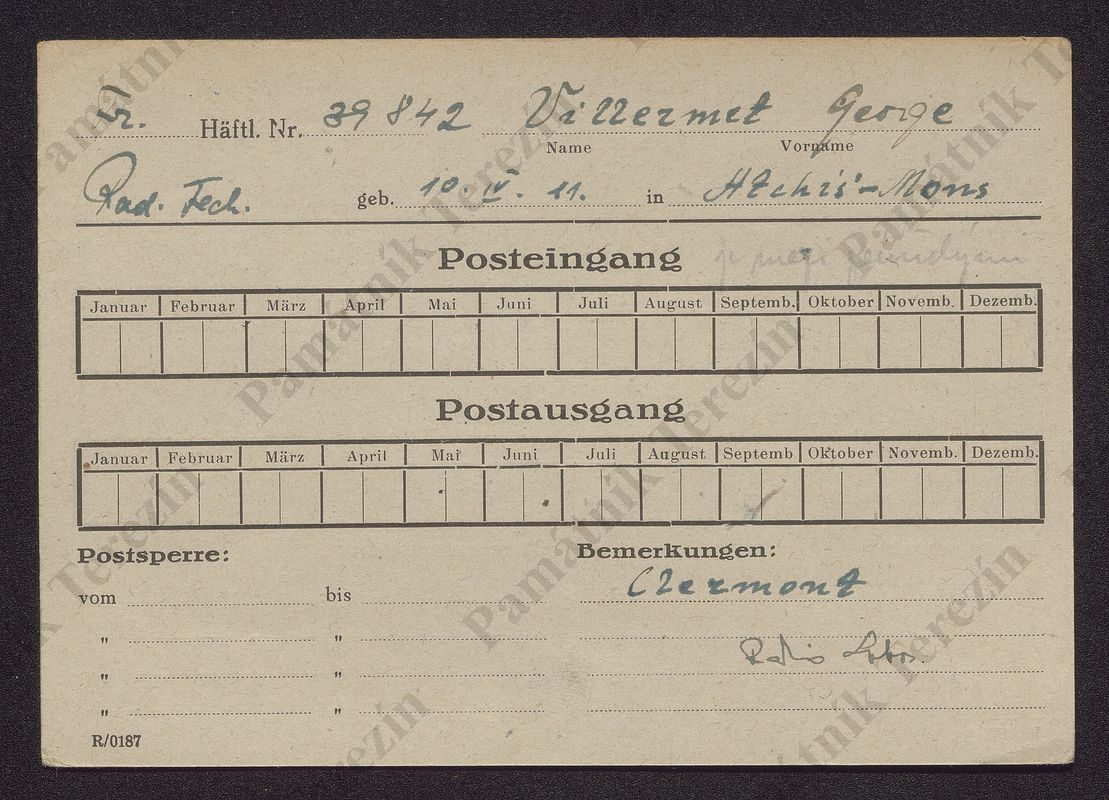 Fr. Häftl. Nr. 39842 Villermet George
Name Vorname
Rad. Tech. geb. 10. IV. 11. in Atchis-Mons
Posteingang
Januar Februar März April Mai Juni Juli August Septemb. Oktober Novemb. Dezemb.
Postausgang
Januar Februar März April Mai Juni Juli August Septemb Oktober Novemb. Dezemb.
Postsperre: Bemerkungen:
vom bis Clermont
" "
Radio
" "
" "
R/0187
Památník Terezín